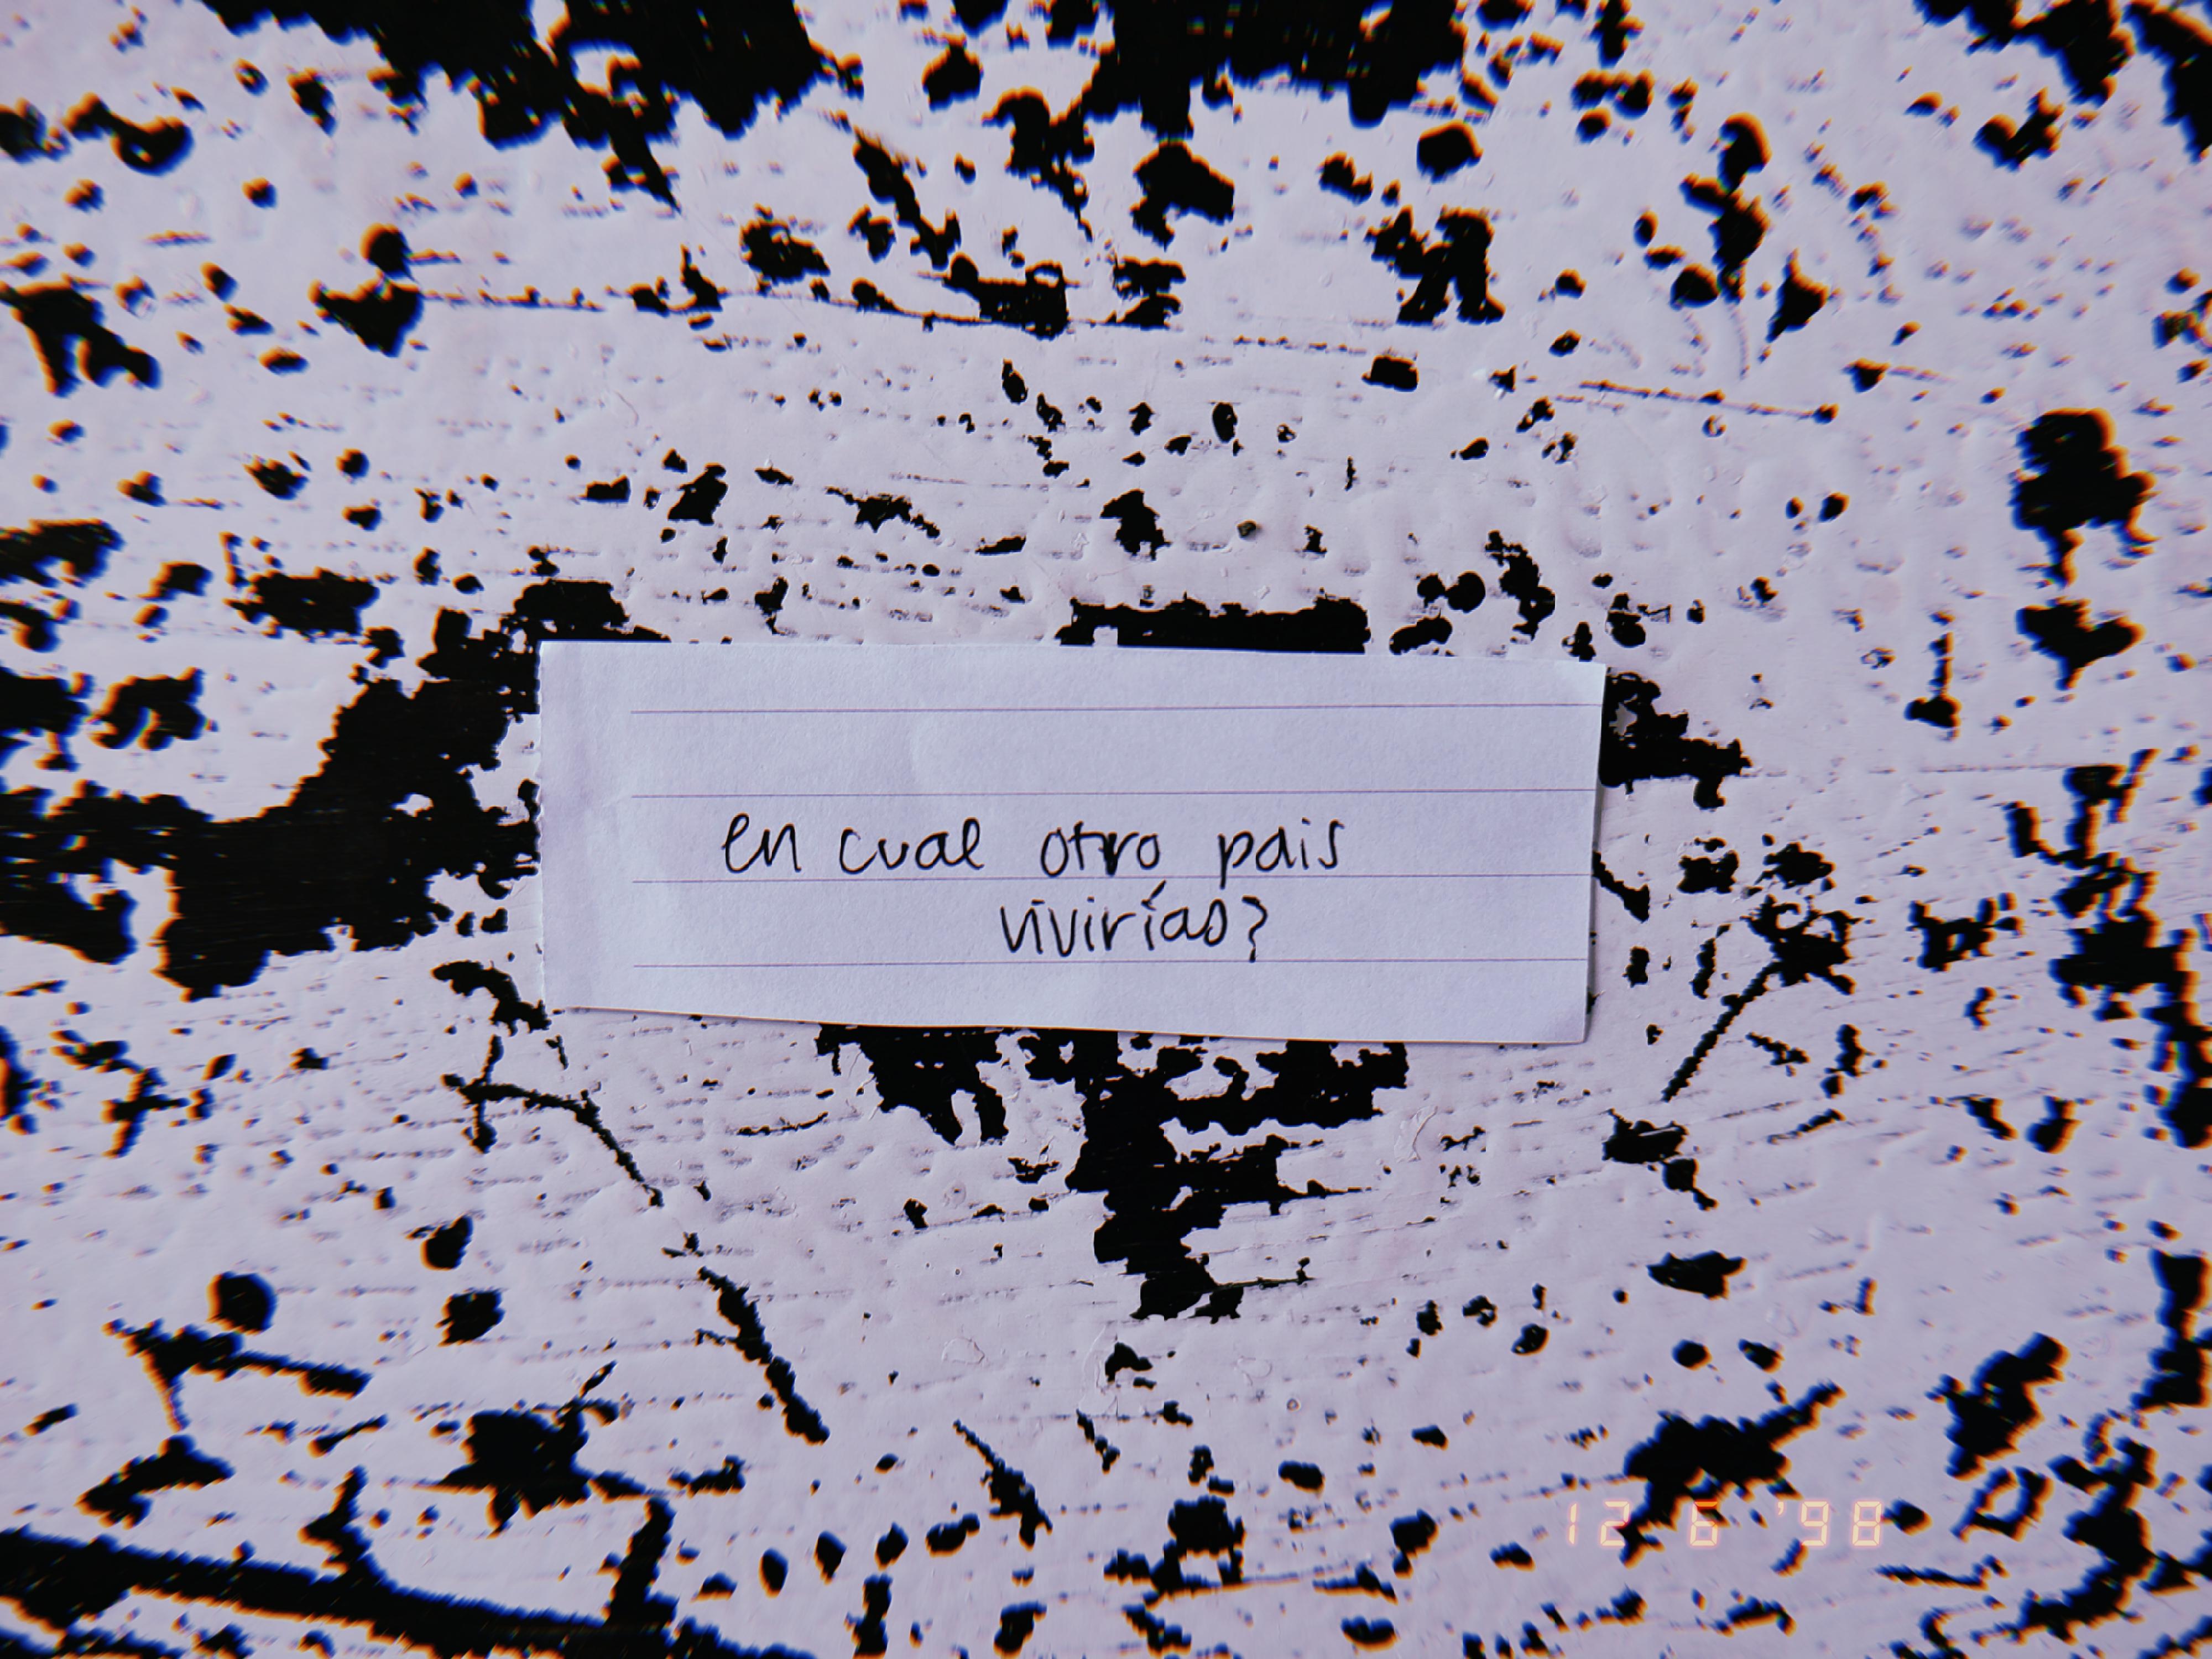 en cual otro pais
vivirías?
12 6 '98